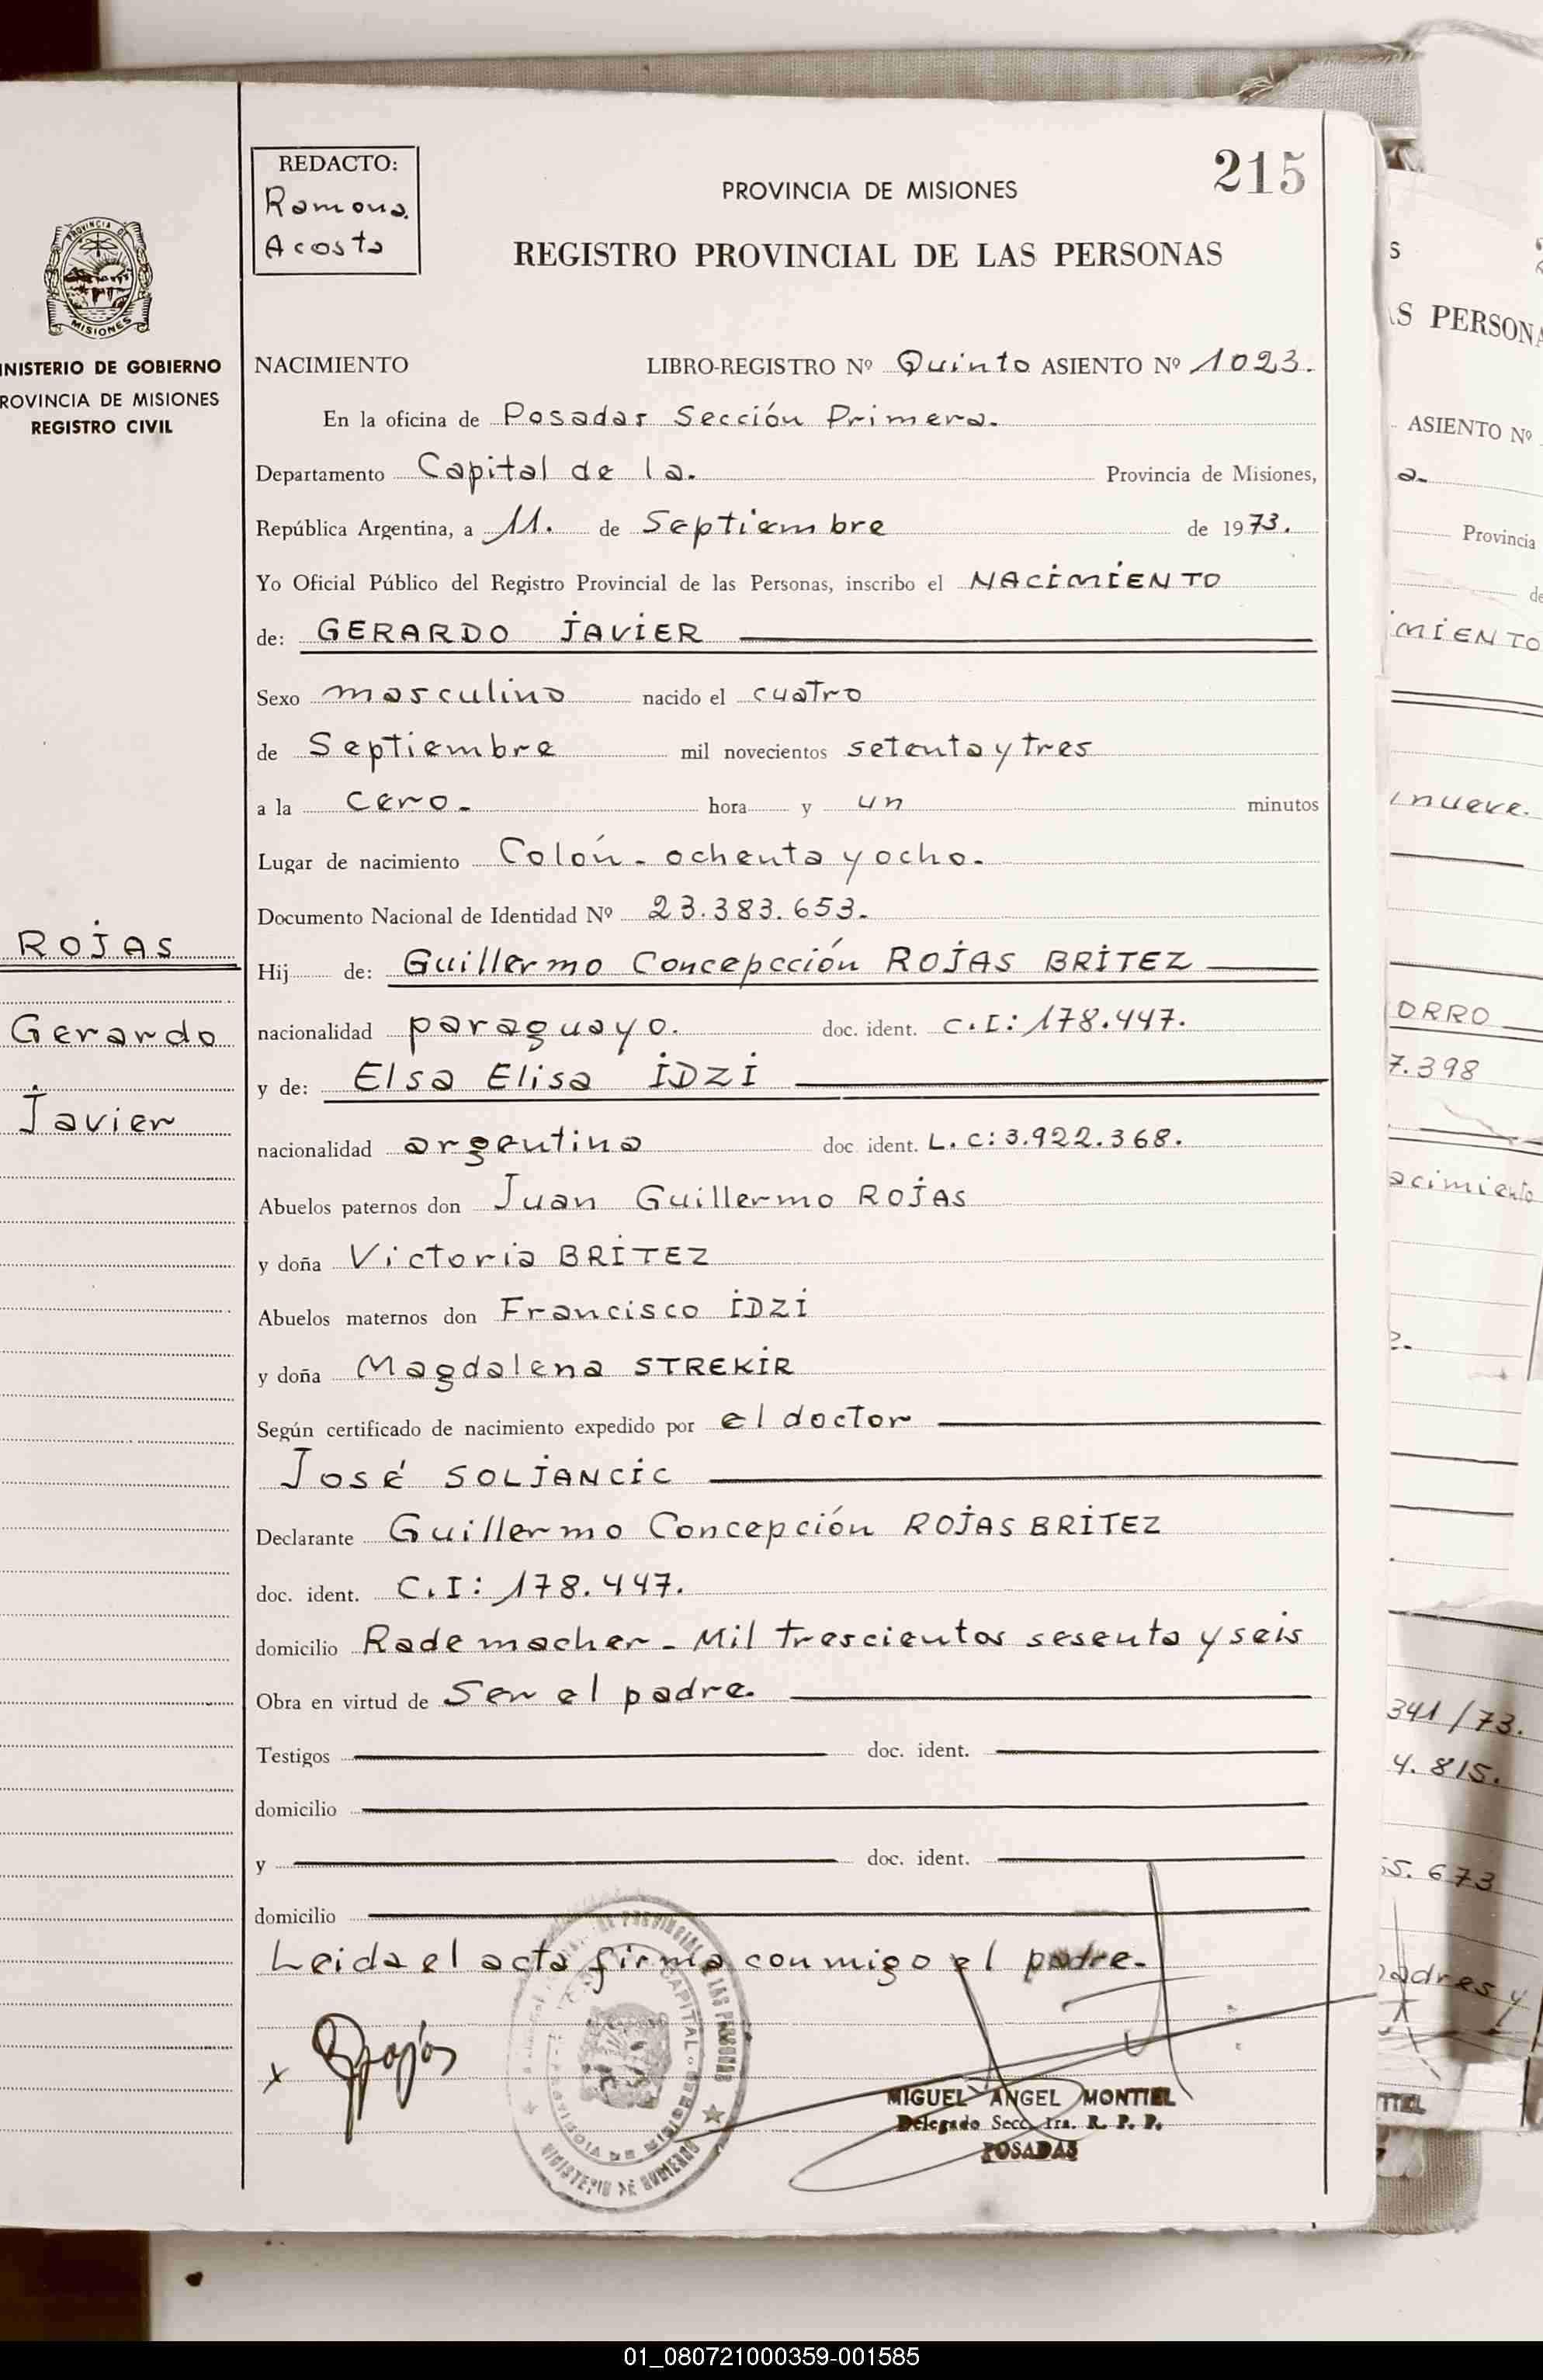 REDACTO:
Ramona.
Acosta
215
PROVINCIA DE MISIONES
REGISTRO PROVINCIAL DE LAS PERSONAS
PROVINCIA DE
MISIONES
INISTERIO DE GOBIERNO
ROVINCIA DE MISIONES
REGISTRO CIVIL
NACIMIENTO LIBRO-REGISTRO Nº Quinto ASIENTO Nº 1023.
En la oficina de Posadas Sección Primera.
Departamento Capital de la. Provincia de Misiones,
República Argentina, a 11. de Septiembre de 1973.
Yo Oficial Público del Registro Provincial de las Personas, inscribo el NACIMIENTO
de: GERARDO JAVIER
Sexo masculino nacido el cuatro
de Septiembre mil novecientos setenta y tres
a la cero. hora y un minutos
Lugar de nacimiento Colón - ochenta y ocho.
Documento Nacional de Identidad Nº 23.383.653.
ROJAS
Gerardo
Javier
Hij de: Guillermo Concepcción ROJAS BRITEZ
nacionalidad paraguayo. doc. ident. C.I: 178.447.
y de: Elsa Elisa IDZI
nacionalidad argentina doc. ident. L.C: 3.922.368.
Abuelos paternos don Juan Guillermo ROJAS
y doña Victoria BRITEZ
Abuelos maternos don Francisco IDZI
y doña Magdalena STREKIR
Según certificado de nacimiento expedido por el doctor
José SOLJANCIC
Declarante Guillermo Concepción ROJAS BRITEZ
doc. ident. C.I: 178.447.
domicilio Rademacher - Mil trescientos sesenta y seis
Obra en virtud de Ser el padre.
Testigos doc. ident.
domicilio
y doc. ident.
domicilio
Leida el acta firma conmigo el padre.
x Rojas
MIGUEL ANGEL MONTIEL
Delegado Secc. 1ra. R. P. P.
POSADAS
S
AS PERSONA
ASIENTO Nº
a.
Provincia
de
MIENTO
nueve.
ORRO
7.398
acimiento
341/73.
4.815.
55.673
padres y
TIEL
01_080721000359-001585